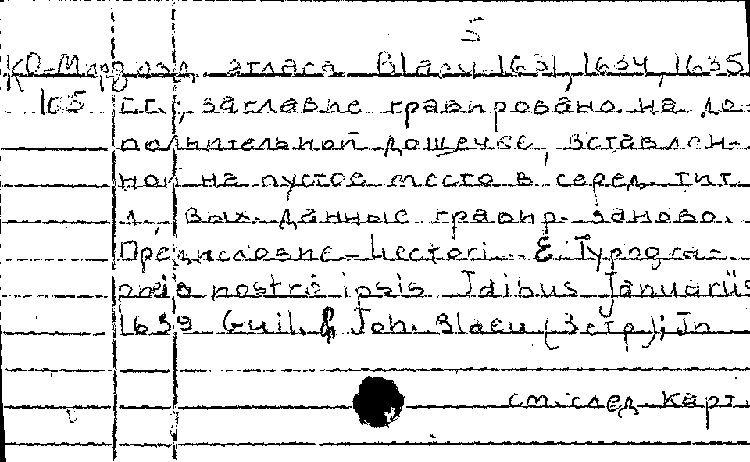 5
КО-Мпр изд. атласа Blaeu 1631, 1634, 1635
165 гг., заглавие гравировано на до-
полнительной дощечке, вставлен-
ной на пустое место в серед. тит.
л., вых. данные гравир. заново.
Предисловие - Lectori... E Typogra-
phia nostrê ipsis Idibus Januariis
1639 Guil. & Joh. Blaeu (3 стр.); In
см. след. карт.